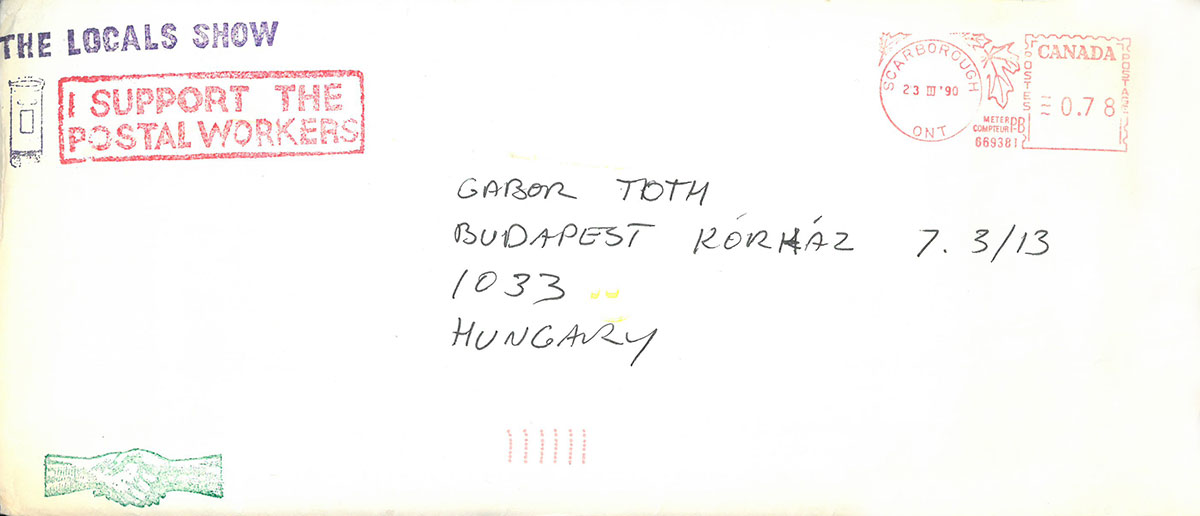 THE LOCALS SHOW
I SUPPORT THE
POSTAL WORKERS
SCARBOROUGH
23 III '90
ONT
CANADA
POSTES
POSTAGE
0.78
METER
COMPTEUR PB
669381
GABOR TOTH
BUDAPEST KÓRHÁZ 7. 3/13
1033
HUNGARY